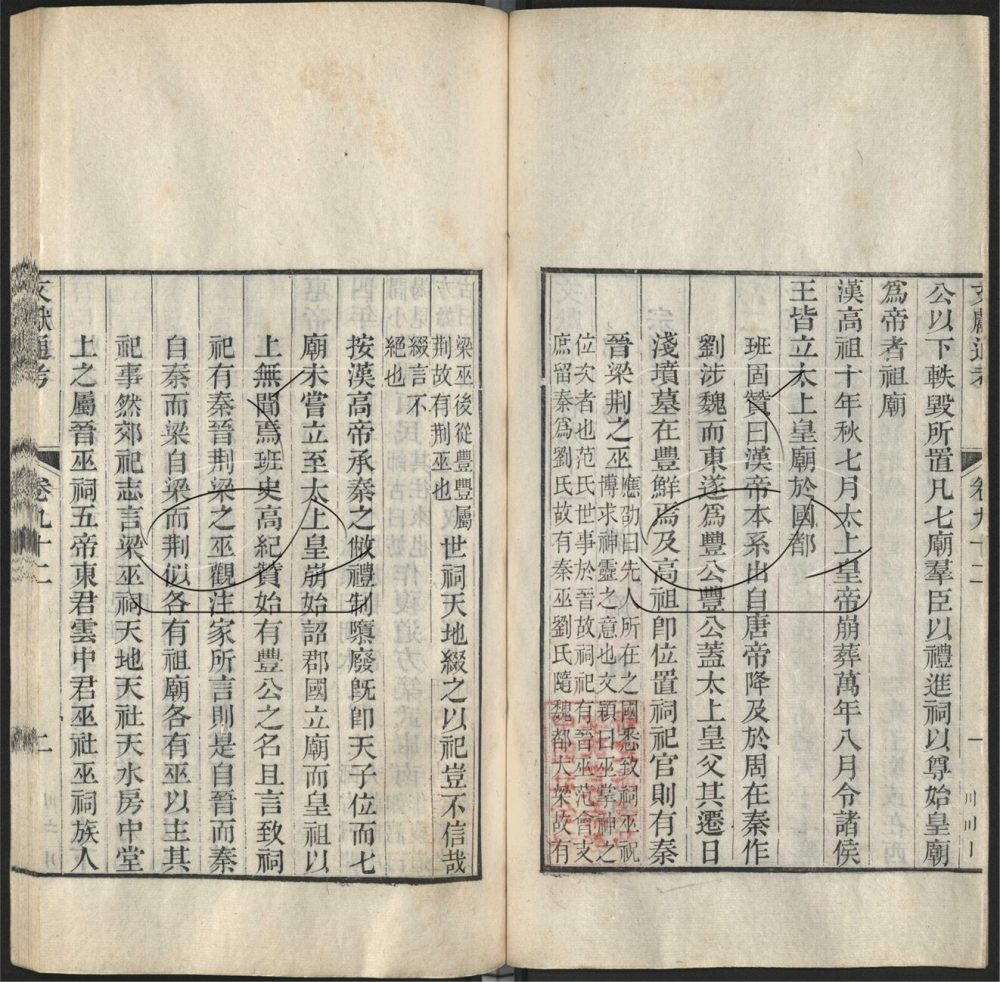 公以下軼毀所置凡七廟羣臣以禮進祠以尊始皇廟
爲帝者祖廟
漢高祖十年秋七月太上皇帝崩葬萬年八月令諸侯
王皆立太上皇廟於國都
班固贊曰漢帝本系出自唐帝降及於周在秦作
劉涉魏而東遂爲豐公豐公蓋太上皇父其遷日
淺墳墓在豐鮮焉及高祖卽位置祠祀官則有秦
晉梁荆之巫
應劭曰先人所在之國悉致祠巫祝
博求神靈之意也文穎曰巫掌神之
位次者也范氏世事於晉故祠祀有晉巫范會支
庶留秦爲劉氏故有秦巫劉氏隨魏都大梁故有
梁巫後從豐豐屬
荆故有荆巫也
綴言不
絕也
世祠天地綴之以祀豈不信哉
按漢高帝承秦之敝禮制隳廢旣卽天子位而七
廟未嘗立至太上皇崩始詔郡國立廟而皇祖以
上無聞焉班史高紀贊始有豐公之名且言致祠
祀有秦晉荆梁之巫觀注家所言則是自晉而秦
自秦而梁自梁而荆似各有祖廟各有巫以主其
祀事然郊祀志言梁巫祠天地天社天水房中堂
上之屬晉巫祠五帝東君雲中君巫社巫祠族人
文獻通考
卷九十二
二